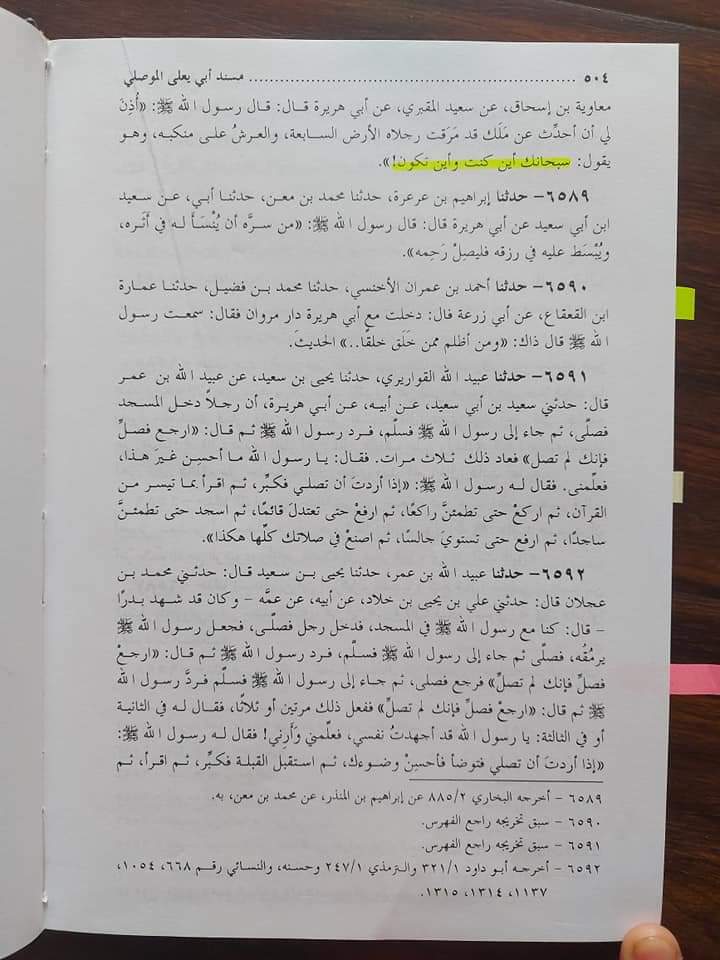 ٥٠٤ ................................................................ مسند أبي يعلى الموصلي
معاوية بن إسحاق، عن سعيد المقبري، عن أبي هريرة قال: قال رسول الله ﷺ: «أُذِنَ
لي أن أحدِّث عن مَلَك قد مَرَقت رجلاه الأرض السابعة، والعرشُ على منكبه، وهو
يقول: سبحانك أين كنت وأين تكون!».
٦٥٨٩- حدثنا إبراهيم بن عرعرة، حدثنا محمد بن معن، حدثنا أبي، عن سعيد
ابن أبي سعيد عن أبي هريرة قال: قال رسول الله ﷺ: «من سرَّه أن يُنْسَأ له في أَثَره،
ويُبْسَط عليه في رزقه فليصِلْ رَحِمه».
٦٥٩٠- حدثنا أحمد بن عمران الأخنسي، حدثنا محمد بن فضيل، حدثنا عمارة
ابن القعقاع، عن أبي زرعة قال: دخلت مع أبي هريرة دار مروان فقال: سمعت رسول
الله ﷺ قال ذاك: «ومن أظلم ممن خَلَق خلقًا..» الحديثَ.
٦٥٩١- حدثنا عبيد الله القواريري، حدثنا يحيى بن سعيد، عن عبيد الله بن عمر
قال: حدثني سعيد بن أبي سعيد، عن أبيه، عن أبي هريرة، أن رجلاً دخل المسجد
فصلَّى، ثم جاء إلى رسول الله ﷺ فسلَّم، فرد رسول الله ﷺ ثم قال: «ارجع فصلِّ
فإنك لم تصل» فعاد ذلك ثلاث مرات. فقال: يا رسول الله ما أحسِن غيرَ هذا،
فعلِّمنى. فقال له رسول الله ﷺ: «إذا أردتَ أن تصلي فكبِّر، ثم اقرأ بما تيسر من
القرآن، ثم اركعْ حتى تطمئنَّ راكعًا، ثم ارفعْ حتى تعتدلَ قائمًا، ثم اسجد حتى تطمئنَّ
ساجدًا، ثم ارفع حتى تستويَ جالسًا، ثم اصنعْ في صلاتك كلِّها هكذا».
٦٥٩٢- حدثنا عبيد الله بن عمر، حدثنا يحيى بن سعيد قال: حدثني محمد بن
عجلان قال: حدثني علي بن يحيى بن خلاد، عن أبيه، عن عمَّه – وكان قد شهد بدرًا
– قال: كنا مع رسول الله ﷺ في المسجد، فدخل رجل فصلَّى، فجعل رسول الله ﷺ
يرمُقُه، فصلَّى ثم جاء إلى رسول الله ﷺ فسلَّم، فرد رسول الله ﷺ ثم قال: «ارجعْ
فصلِّ فإنك لم تصلِّ» فرجع فصلى، ثم جاء إلى رسول الله ﷺ فسلَّم فردَّ رسول الله
ﷺ ثم قال: «ارجعْ فصلِّ فإنك لم تصلِّ» ففعل ذلك مرتين أو ثلاثًا، فقال له في الثانية
أو في الثالثة: يا رسول الله قد أجهدتُ نفسي، فعلِّمني وَأَرِني! فقال له رسول الله ﷺ:
«إذا أردتَ أن تصلي فتوضأ فأحسِنْ وضوءك، ثم استقبل القبلة فكبِّر، ثم اقرأ، ثم
٦٥٨٩ - أخرجه البخاري ٨٨٥/٢ عن إبراهيم بن المنذر، عن محمد بن معن، به.
٦٥٩٠ - سبق تخريجه راجع الفهرس.
٦٥٩١ - سبق تخريجه راجع الفهرس.
٦٥٩٢ - أخرجه أبو داود ٣٢١/١ والترمذي ٢٤٧/١ وحسنه، والنسائي رقم ٦٦٨، ١٠٥٤،
١١٣٧، ١٣١٤، ١٣١٥.